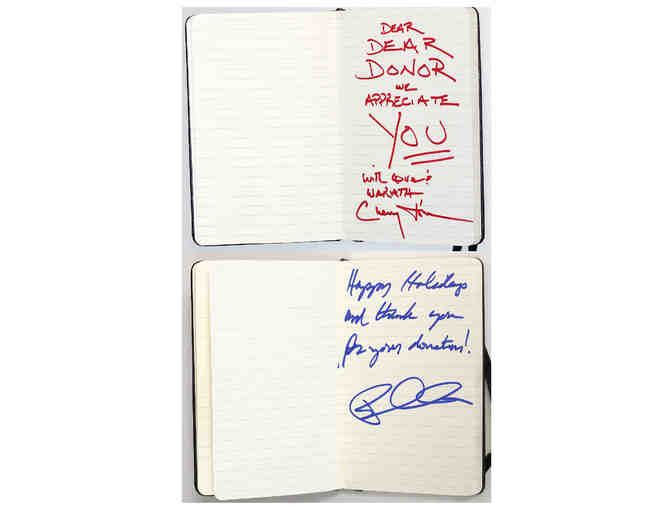 DEAR
DEAR
DONOR
WE
APPRECIATE
YOU
with love &
WARATH
Happy Holidays
and thank you
for your donation!